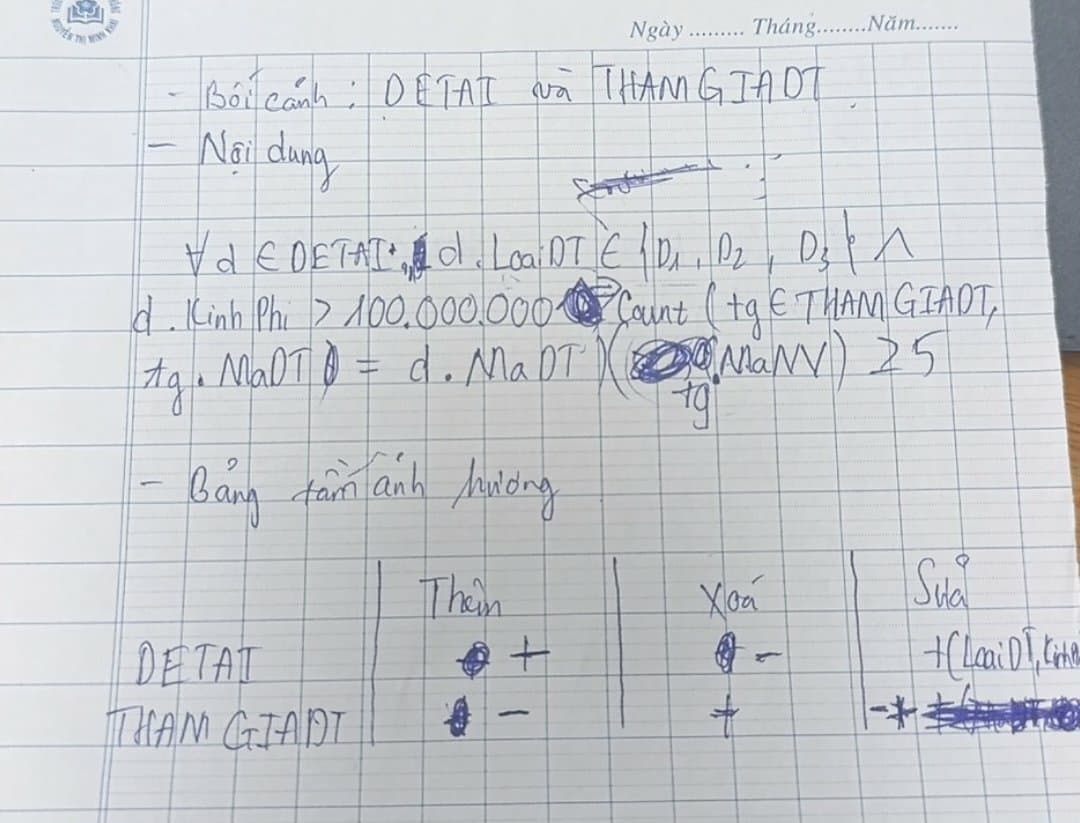 Ngày ......... Tháng........Năm.......
- Bối cảnh : DETAI và THAMGIADT
- Nội dung
∀d ∈ DETAI: d.LoaiDT ∈ {D1, D2, D3} ∧
d.KinhPhi > 100.000.000 => Count (tg ∈ THAMGIADT,
tg.MaDT = d.MaDT)(tg.MaNV) ≥ 5
- Bảng tầm ảnh hưởng
Thêm Xoá Sửa
DETAI + - +(LoaiDT,
THAMGIADT - + -*